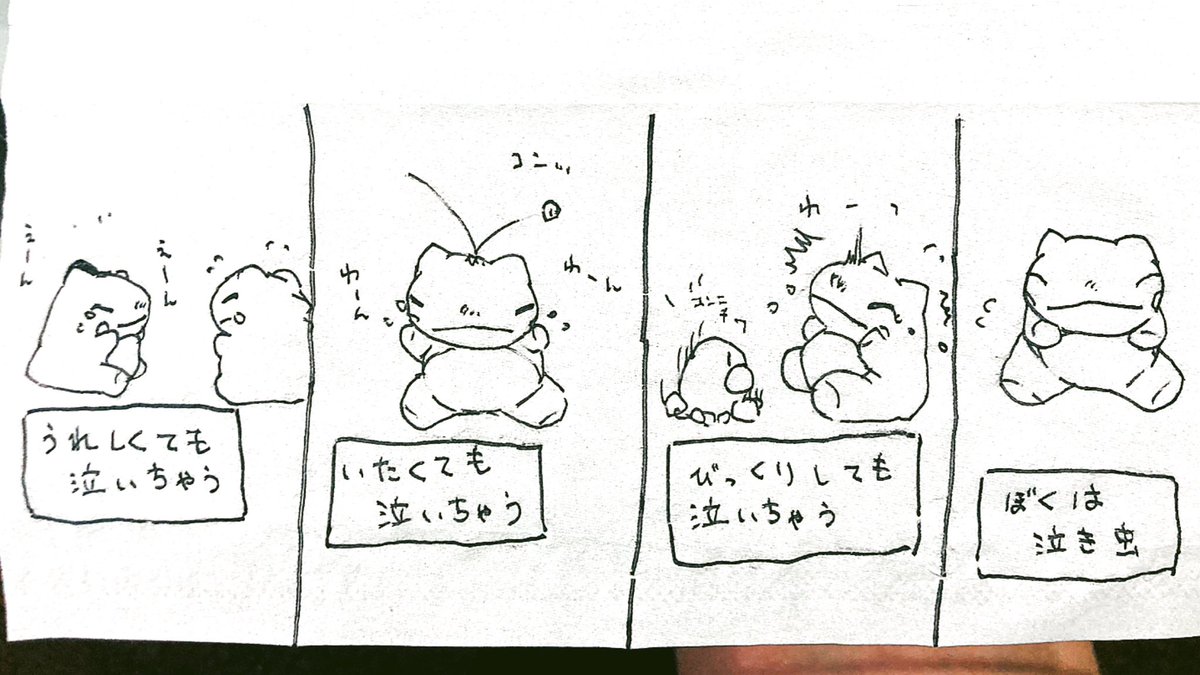 ぼくは
泣き虫
わーっ
コンニ
チワ
びっくりしても
泣いちゃう
コンッ
わーん
わーん
いたくても
泣いちゃう
えーん
えーん
うれしくても
泣いちゃう